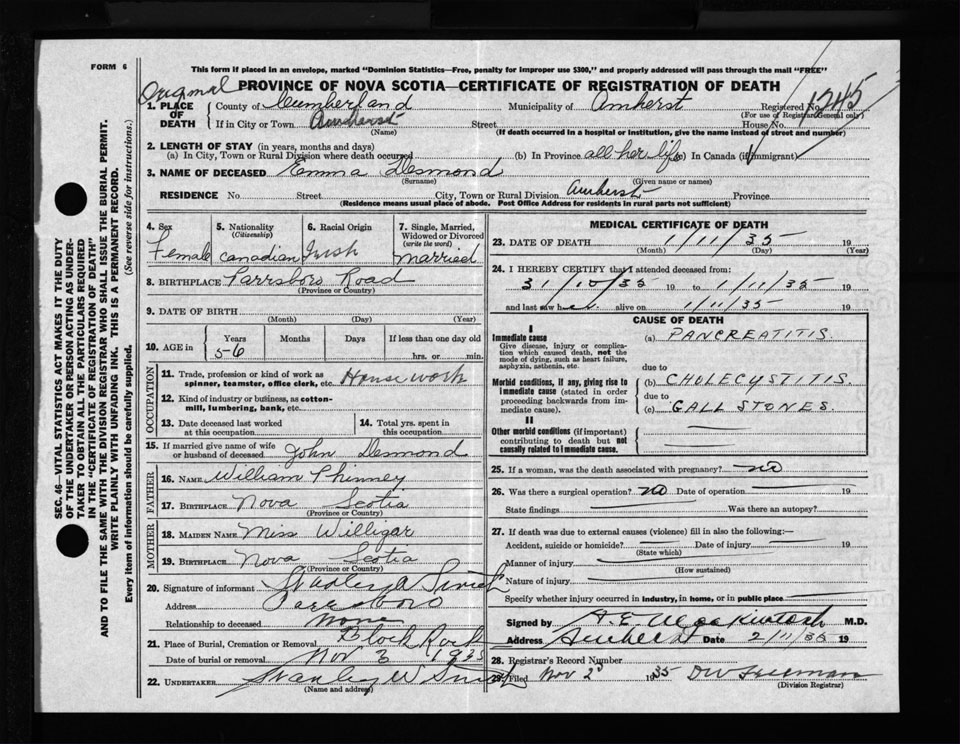 FORM 6
This form if placed in an envelope, marked "Dominion Statistics—Free, penalty for improper use $300," and properly addressed will pass through the mail "FREE"
Original
PROVINCE OF NOVA SCOTIA—CERTIFICATE OF REGISTRATION OF DEATH
1. PLACE OF DEATH
County of Cumberland Municipality of Amherst Registered No. 1245
(For use of Registrar General only)
If in City or Town Amherst Street House No.
(Name) (If death occurred in a hospital or institution, give the name instead of street and number)
2. LENGTH OF STAY (in years, months and days)
(a) In City, Town or Rural Division where death occurred (b) In Province all her life (c) In Canada (if immigrant)
3. NAME OF DECEASED Emma Desmond
(Surname) (Given name or names)
RESIDENCE No. Street City, Town or Rural Division Amherst Province
(Residence means usual place of abode. Post Office Address for residents in rural parts not sufficient)
4. Sex 5. Nationality (Citizenship) 6. Racial Origin 7. Single, Married, Widowed or Divorced (write the word)
Female Canadian Irish Married
8. BIRTHPLACE Parrsboro Road
(Province or Country)
9. DATE OF BIRTH
(Month) (Day) (Year)
10. AGE in Years Months Days If less than one day old
56 hrs. or min.
OCCUPATION
11. Trade, profession or kind of work as spinner, teamster, office clerk, etc. Housework
12. Kind of industry or business, as cotton-mill, lumbering, bank, etc.
13. Date deceased last worked at this occupation 14. Total yrs. spent in this occupation
15. If married give name of wife or husband of deceased John Desmond
FATHER
16. NAME William Phinney
17. BIRTHPLACE Nova Scotia
(Province or Country)
MOTHER
18. MAIDEN NAME Miss Willigar
19. BIRTHPLACE Nova Scotia
(Province or Country)
20. Signature of informant Stanley W Smith
Address Parrsboro
Relationship to deceased None
21. Place of Burial, Cremation or Removal Black Rock
Date of burial or removal Nov 3 1935
22. UNDERTAKER Stanley W Smith
(Name and address)
MEDICAL CERTIFICATE OF DEATH
23. DATE OF DEATH 1/11/35 19
(Month) (Day) (Year)
24. I HEREBY CERTIFY that I attended deceased from:
31/10/35 19 to 1/11/35 19
and last saw her alive on 1/11/35 19
CAUSE OF DEATH
I
Immediate cause
Give disease, injury or complication which caused death, not the mode of dying, such as heart failure, asphyxia, asthenia, etc.
(a) PANCREATITIS.
due to
Morbid conditions, if any, giving rise to immediate cause (stated in order proceeding backwards from immediate cause).
(b) CHOLECYSTITIS.
due to
(c) GALL STONES.
II
Other morbid conditions (if important) contributing to death but not causally related to immediate cause.
25. If a woman, was the death associated with pregnancy? no
26. Was there a surgical operation? no Date of operation 19
State findings Was there an autopsy?
27. If death was due to external causes (violence) fill in also the following:—
Accident, suicide or homicide? Date of injury 19
(State which)
Manner of injury
(How sustained)
Nature of injury
Specify whether injury occurred in industry, in home, or in public place
Signed by A.E. Mackintosh M.D.
Address Amherst Date 2/11/35 19
28. Registrar's Record Number
29. Filed Nov 2 1935 DW Freeman
(Division Registrar)
SEC. 46—VITAL STATISTICS ACT MAKES IT THE DUTY
OF THE UNDERTAKER OR PERSON ACTING AS UNDER-
TAKER TO OBTAIN ALL THE PARTICULARS REQUIRED
IN THE "CERTIFICATE OF REGISTRATION OF DEATH"
AND TO FILE THE SAME WITH THE DIVISION REGISTRAR WHO SHALL ISSUE THE BURIAL PERMIT.
WRITE PLAINLY WITH UNFADING INK. THIS IS A PERMANENT RECORD.
Every item of information should be carefully supplied. (See reverse side for instructions.)